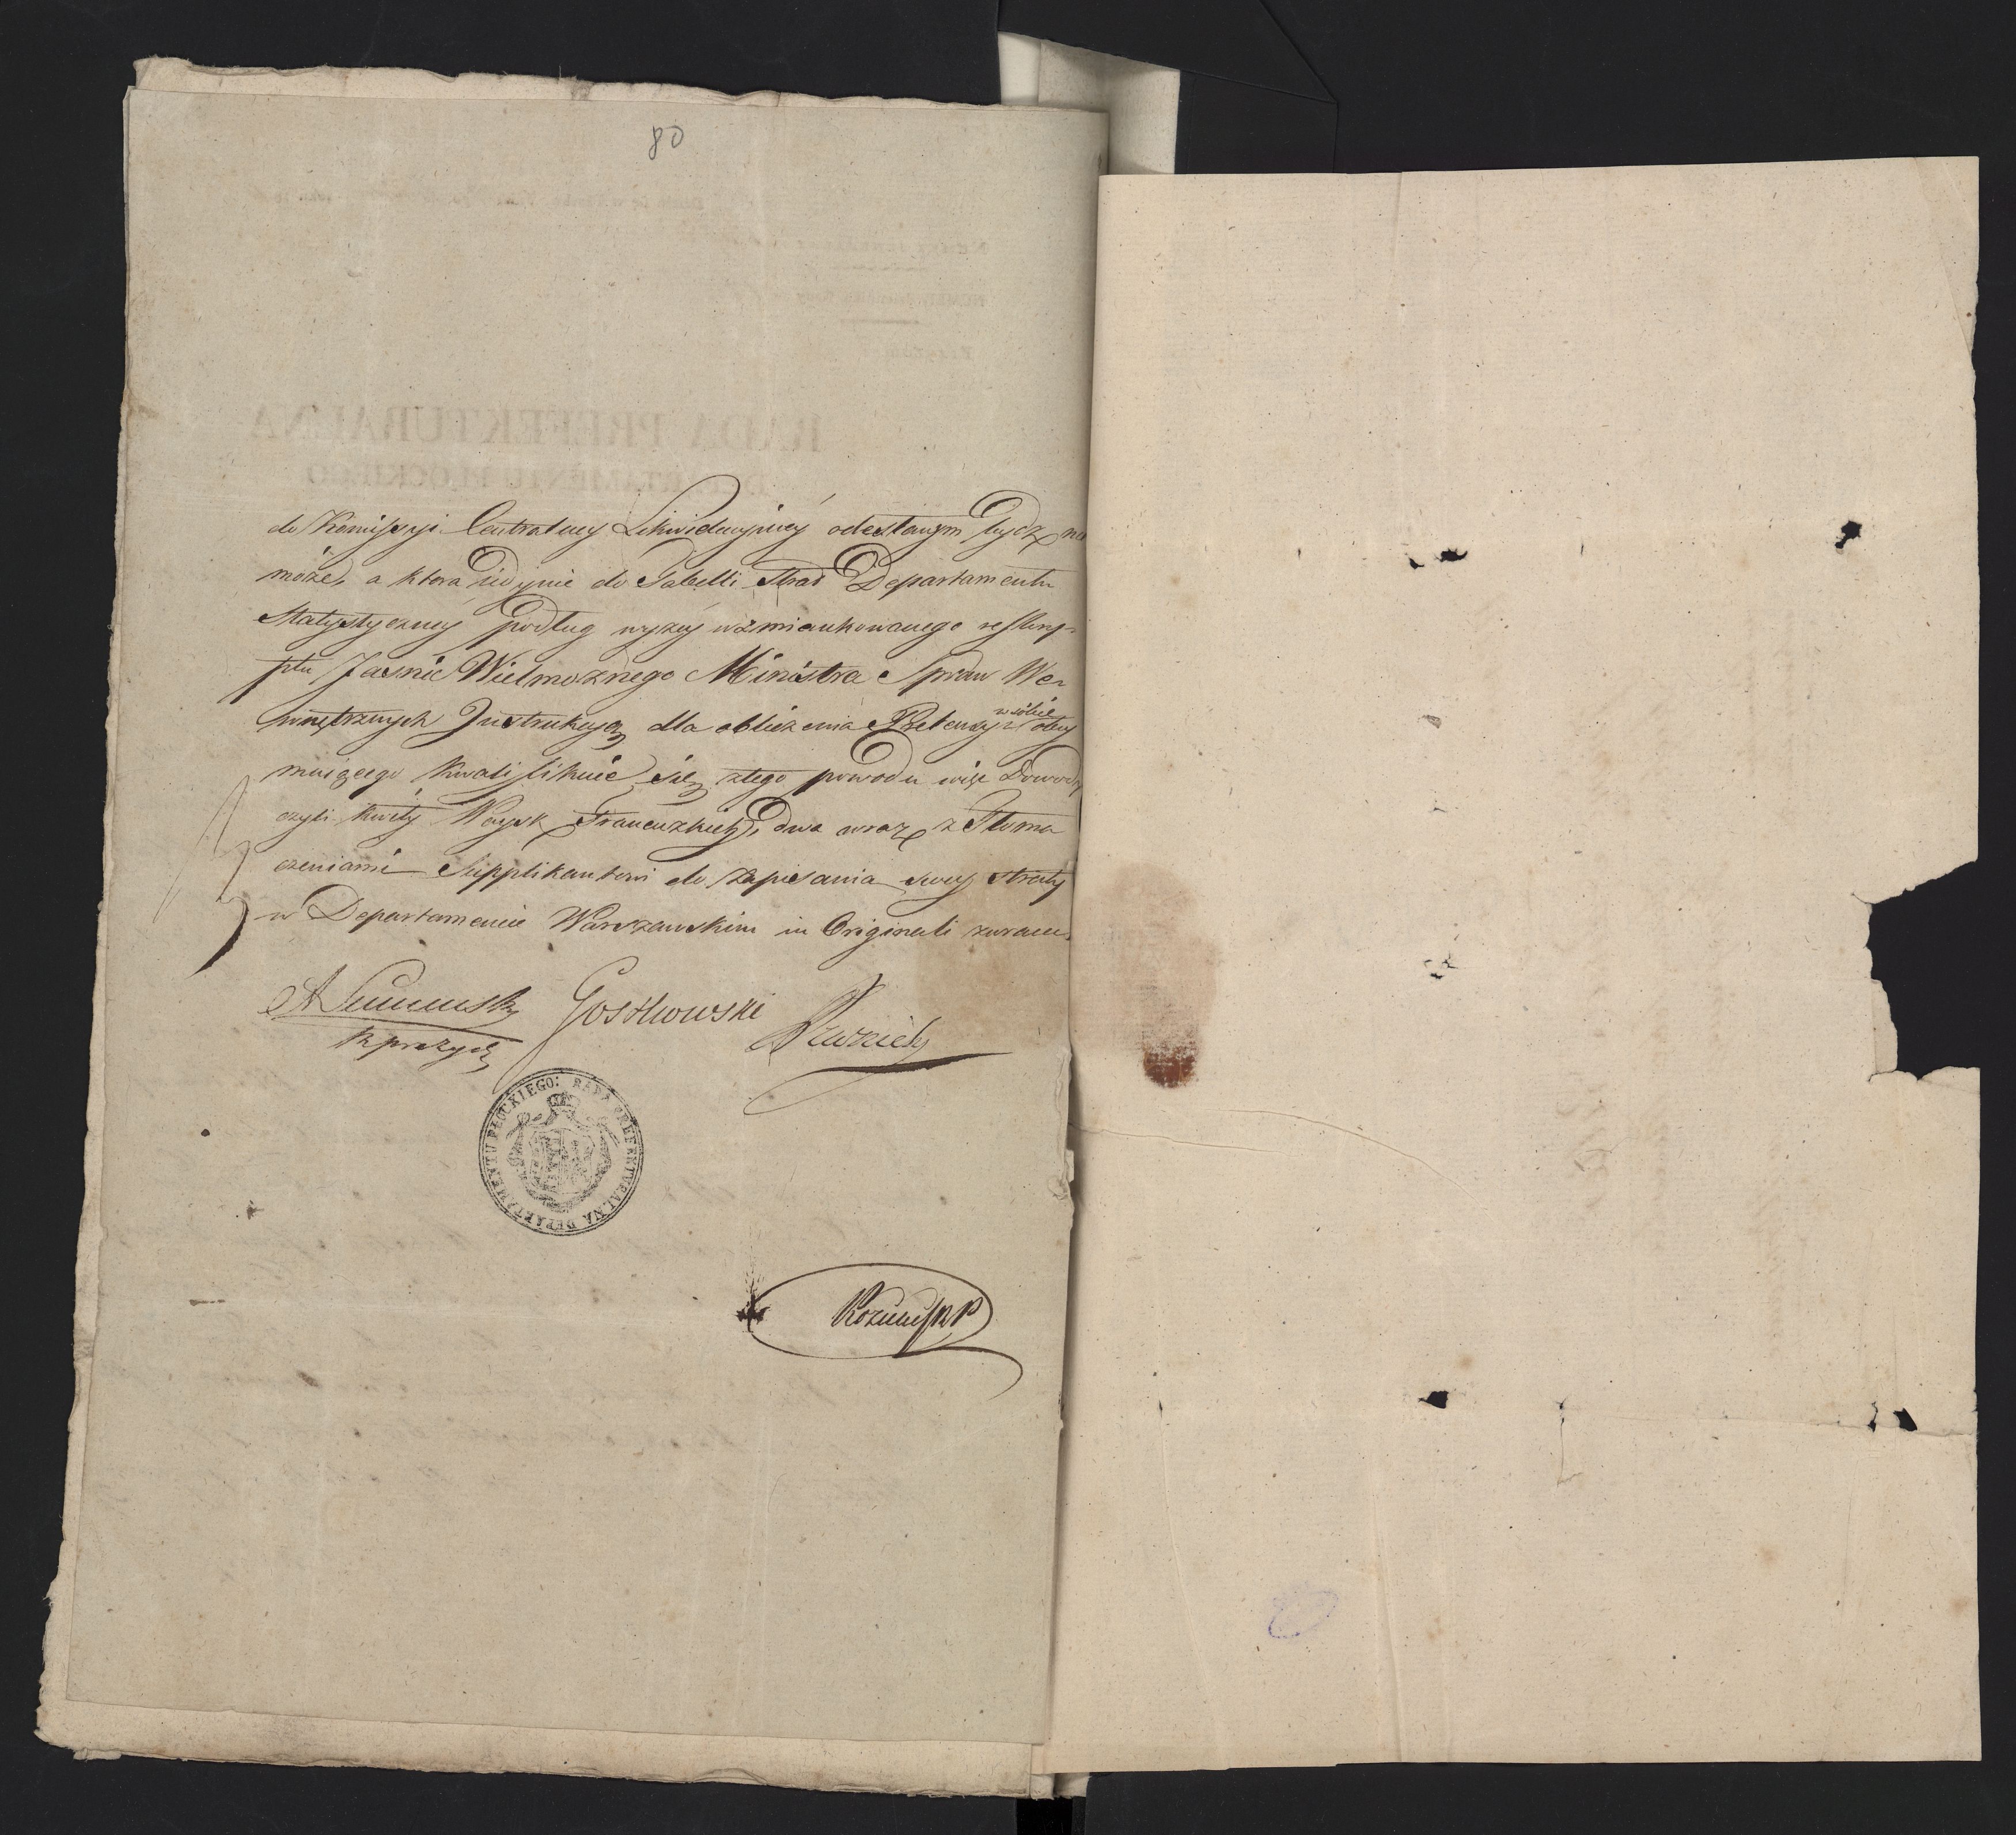 80
do Kommissyi Centralney Likwidacyiney odesłanym bydź nie
może, a która iedynie do Tabelli Strat Departamentu
Statystyczney podług wyżey wzmiankowanego reskryp-
ptu Jaśnie Wielmożnego Ministra Spraw We-
wnętrznych Instrukcyą dla obliczenia Pretensyi w sobie obey
muiącego kwalifikuie się, z tego powodu więc Dowody
czyli kwity Woysk Francuzkich, dwa wraz z Tłoma
czeniami Supplikantowi do zapisania swey straty
w Departamencie Warszawskim in Originali zwraca.
Gostkowski
RADA PREFEKTURALNA DEPARTAMENTU PŁOCKIEGO: